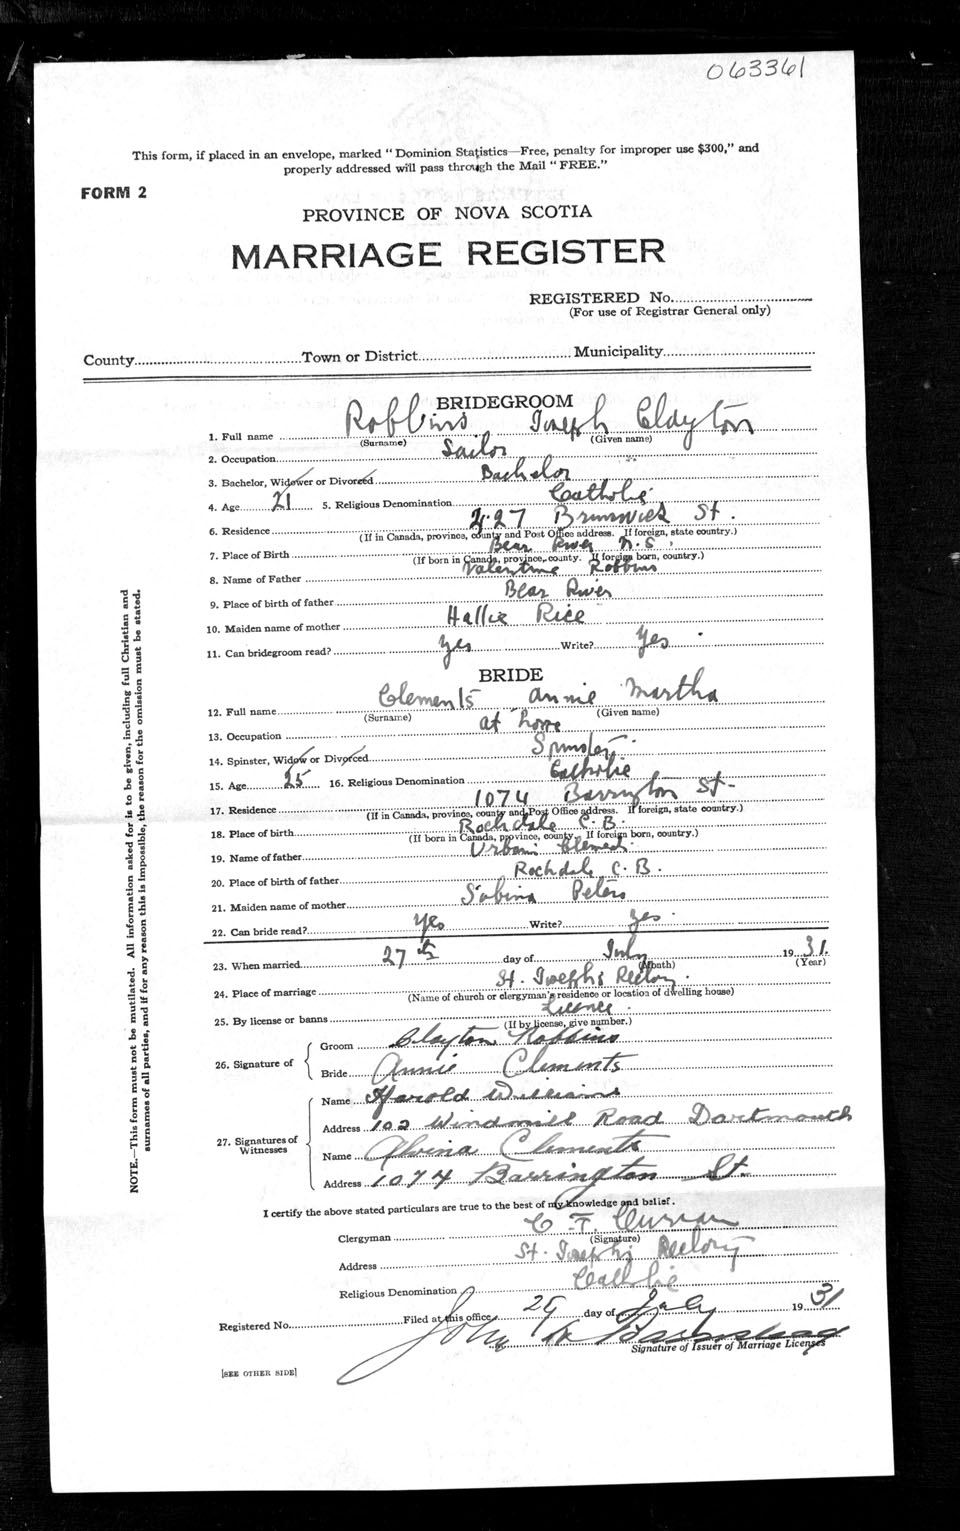 063361
This form, if placed in an envelope, marked "Dominion Statistics—Free, penalty for improper use $300," and
properly addressed will pass through the Mail "FREE."
FORM 2
PROVINCE OF NOVA SCOTIA
MARRIAGE REGISTER
REGISTERED No.
(For use of Registrar General only)
County Town or District Municipality
BRIDEGROOM
1. Full name Robbins Joseph Clayton
(Surname) (Given name)
2. Occupation Sailor
3. Bachelor, Widower or Divorced Bachelor
4. Age 21 5. Religious Denomination Catholic
6. Residence 427 Brunswick St.
(If in Canada, province, county and Post Office address. If foreign, state country.)
7. Place of Birth Bear River N.S.
(If born in Canada, province, county. If foreign born, country.)
8. Name of Father Valentine Robbins
9. Place of birth of father Bear River
10. Maiden name of mother Hallie Rice
11. Can bridegroom read? Yes Write? Yes
BRIDE
12. Full name Clements Annie Martha
(Surname) (Given name)
13. Occupation at home
14. Spinster, Widow or Divorced Spinster
15. Age 25 16. Religious Denomination Catholic
17. Residence 1074 Barrington St-
(If in Canada, province, county and Post Office address. If foreign, state country.)
18. Place of birth Rochdale C.B.
(If born in Canada, province, county. If foreign born, country.)
19. Name of father Urbain Clement
20. Place of birth of father Rochdale C.B.
21. Maiden name of mother Sabina Peters
22. Can bride read? Yes Write? Yes
23. When married 27th day of July 1931.
(Month) (Year)
24. Place of marriage St. Joseph's Rectory
(Name of church or clergyman's residence or location of dwelling house)
25. By license or banns Licence
(If by license, give number.)
26. Signature of
Groom Clayton Robbins
Bride Annie Clements
27. Signatures of Witnesses
Name Harold Williams
Address 102 Windmill Road Dartmouth
Name Alvina Clements
Address 1074 Barrington St.
I certify the above stated particulars are true to the best of my knowledge and belief.
Clergyman C. F. Curran
(Signature)
Address St. Joseph's Rectory
Religious Denomination Catholic
Registered No. Filed at this office 29 day of July 1931
John
Signature of Issuer of Marriage Licenses
[SEE OTHER SIDE]
NOTE.—This form must not be mutilated. All information asked for is to be given, including full Christian and
surnames of all parties, and if for any reason this is impossible, the reason for the omission must be stated.